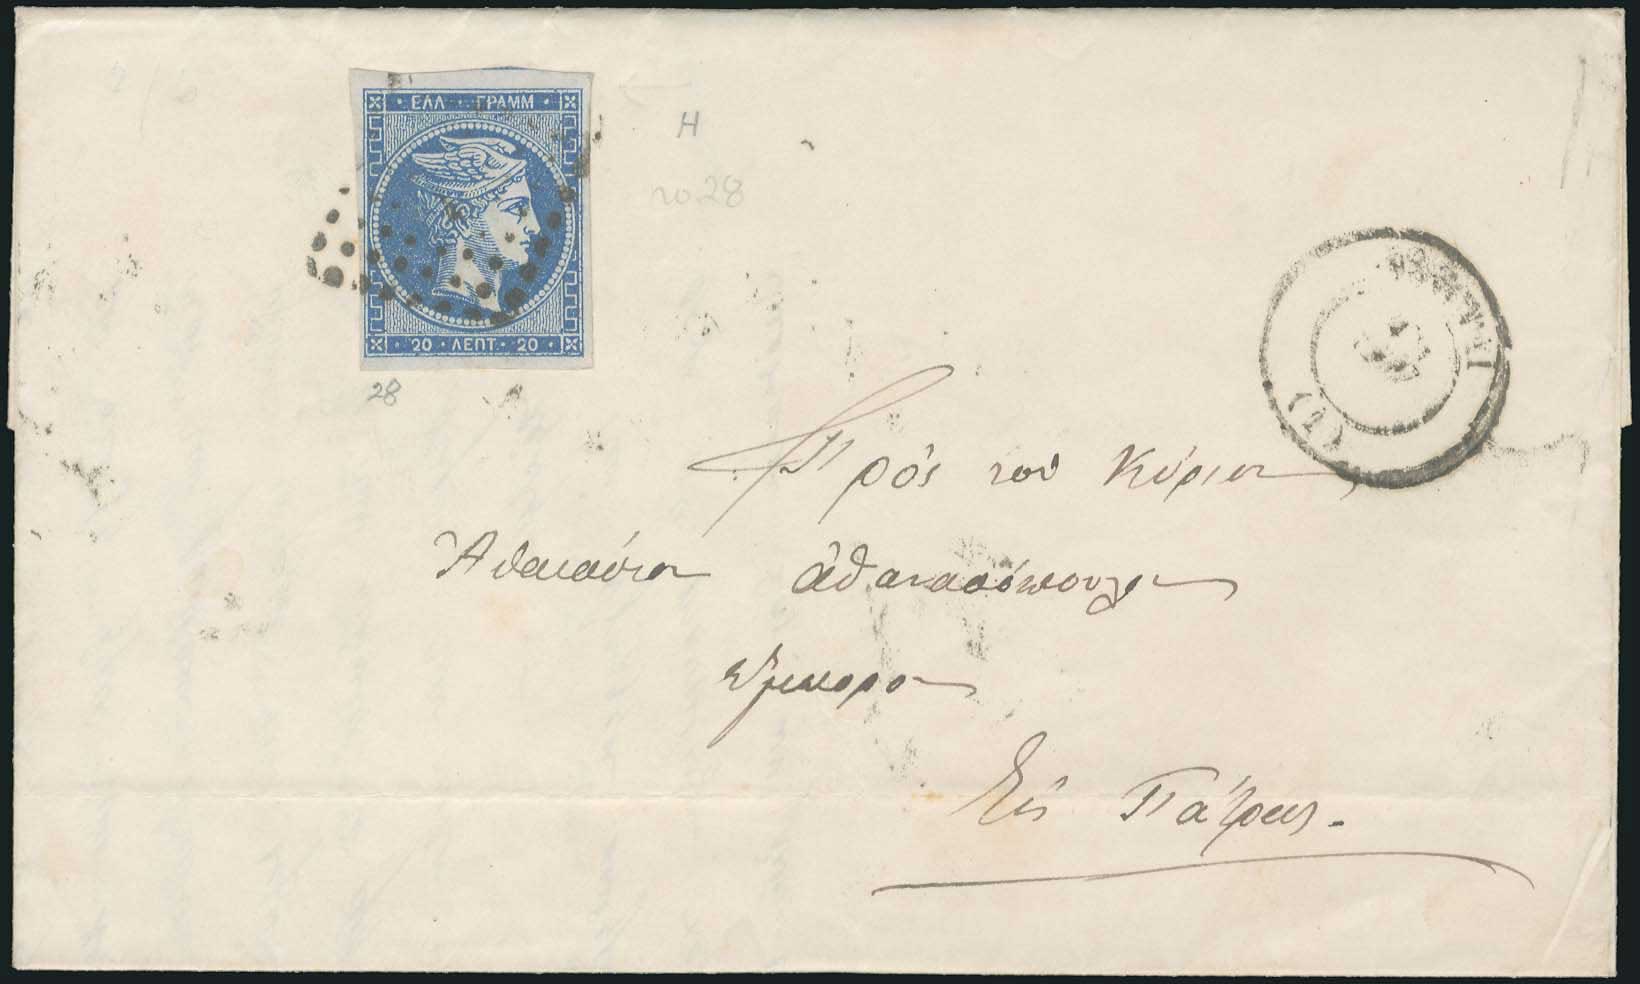 ΕΛΛ ΓΡΑΜΜ
20 ΛΕΠΤ 20
28
Η
no 28
(1)
Πρὸς τον Κύριον
Αθανάσιον ἀθανασόπουλον
Ἔμπορον
Εἰς Πάτρας.